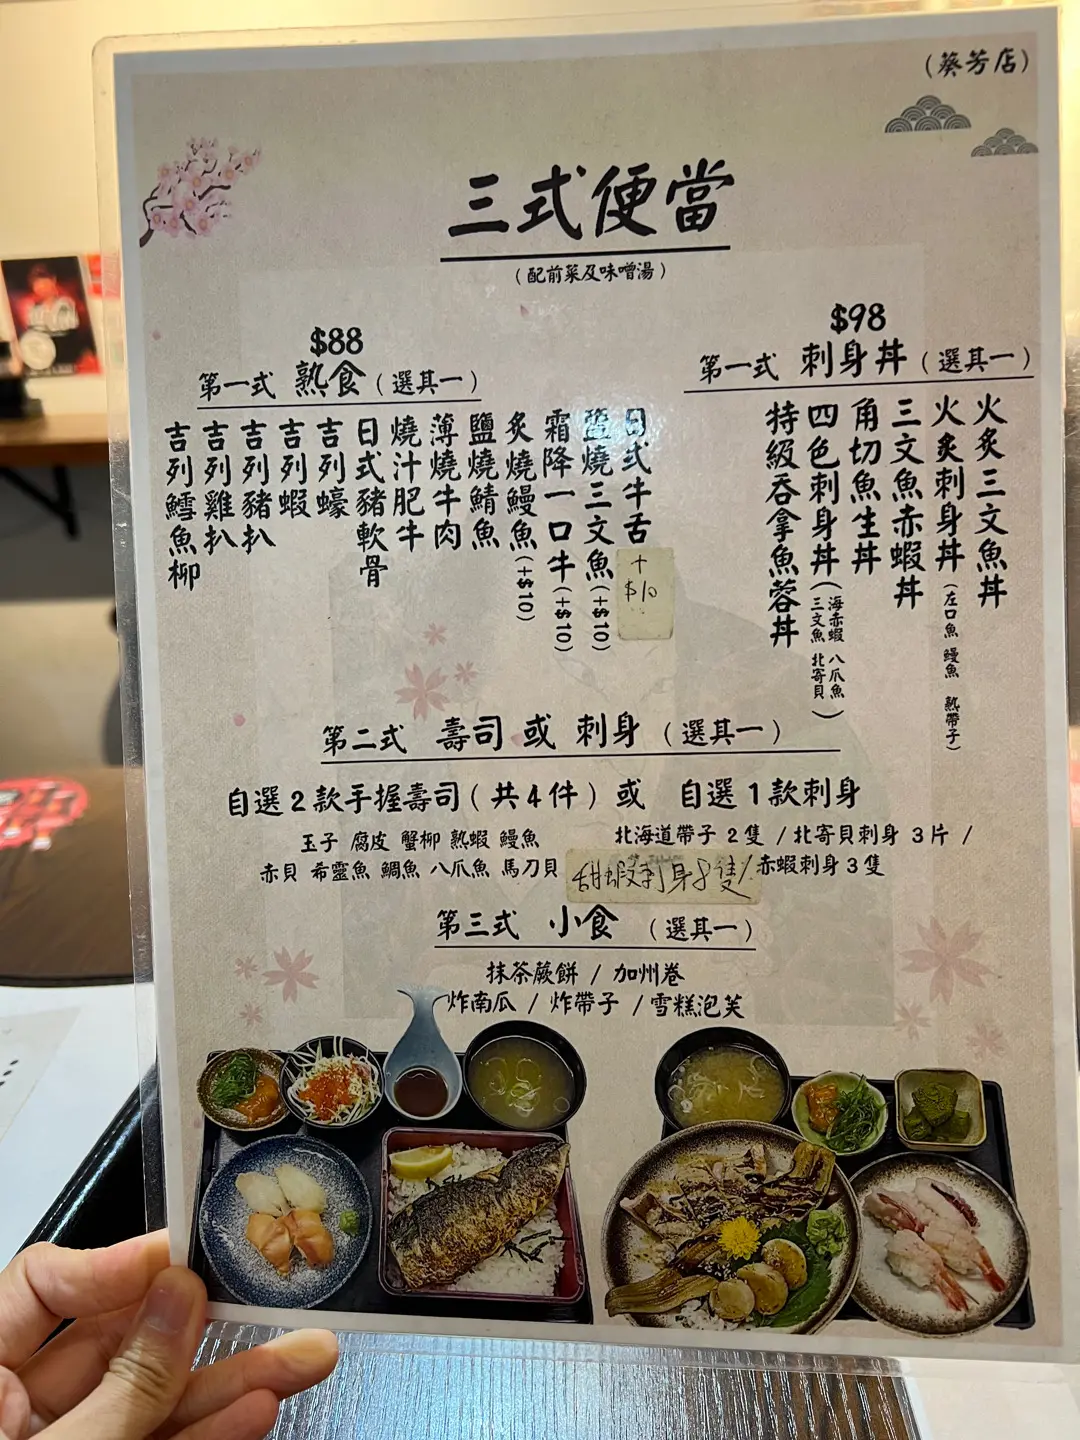 (葵芳店)
三式便當
(配前菜及味噌湯)
$88
第一式 熟食 (選其一)
日式牛舌
+
$10
鹽燒三文魚(+$10)
霜降一口牛(+$10)
炙燒鰻魚(+$10)
鹽燒鯖魚
薄燒牛肉
燒汁肥牛
日式豬軟骨
吉列蠔
吉列蝦
吉列豬扒
吉列雞扒
吉列鱈魚柳
$98
第一式 刺身丼 (選其一)
火炙三文魚丼
火炙刺身丼(左口魚 鰻魚 熟帶子)
三文魚赤蝦丼
角切魚生丼
四色刺身丼(海赤蝦 八爪魚
三文魚 北寄貝)
特級吞拿魚蓉丼
第二式 壽司 或 刺身 (選其一)
自選2款手握壽司(共4件) 或 自選1款刺身
玉子 腐皮 蟹柳 熟蝦 鰻魚
赤貝 希靈魚 鯛魚 八爪魚 馬刀貝
北海道帶子 2隻 / 北寄貝刺身 3片 /
甜蝦刺身8隻/ 赤蝦刺身3隻
第三式 小食 (選其一)
抹茶蕨餅 / 加州卷
炸南瓜 / 炸帶子 / 雪糕泡芙